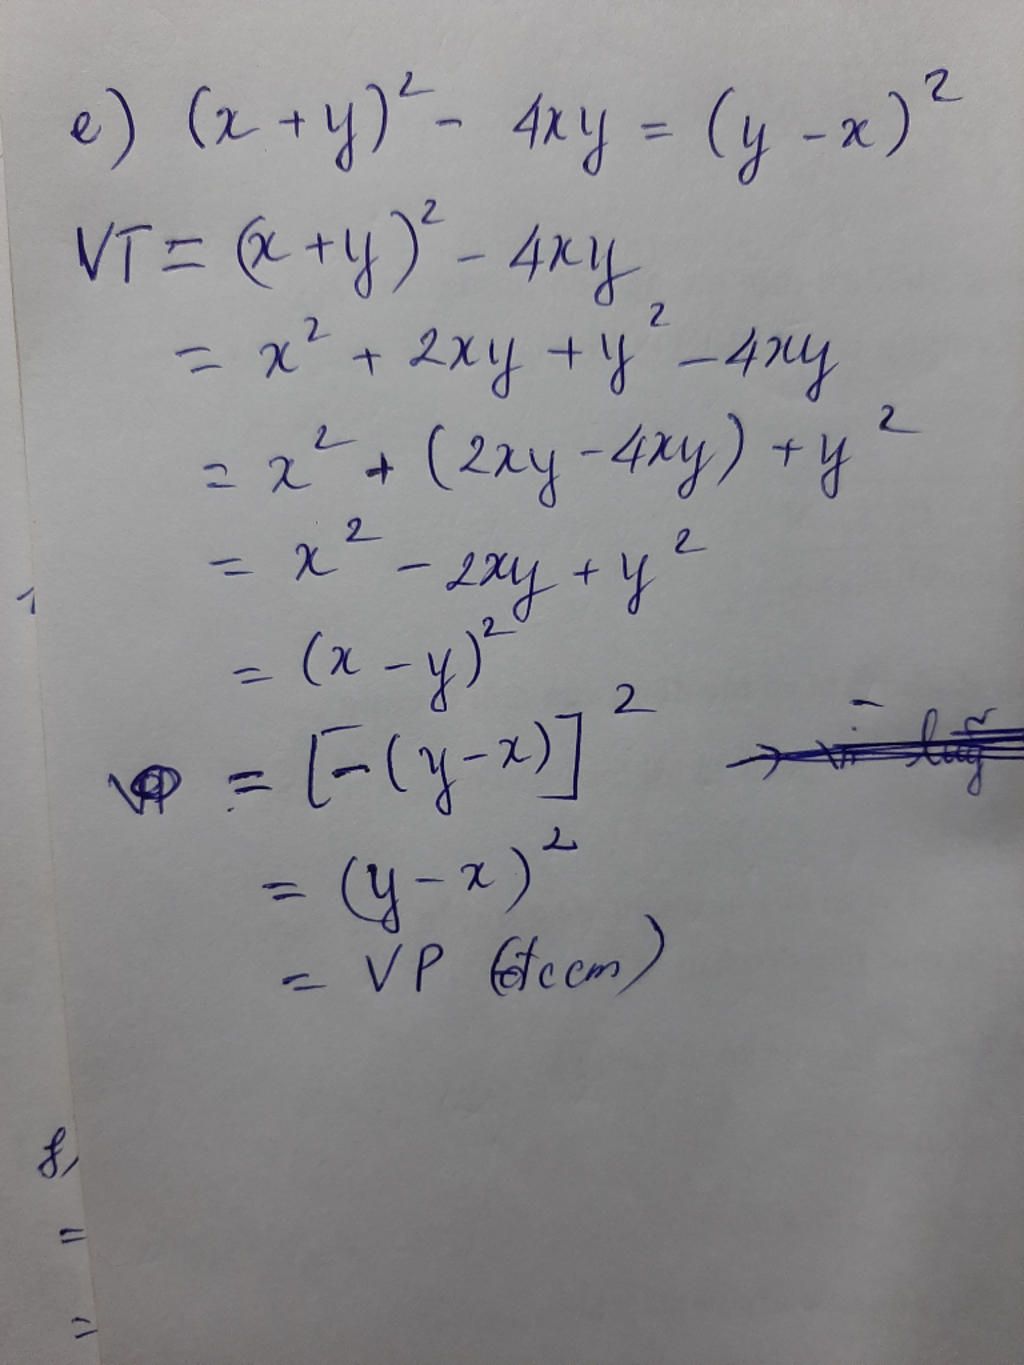 e) (x + y)² - 4xy = (y - x)²
VT = (x + y)² - 4xy
= x² + 2xy + y² - 4xy
= x² + (2xy - 4xy) + y²
= x² - 2xy + y²
= (x - y)²
= [-(y - x)]²
= (y - x)²
= VP (đccm)
f,
=
=